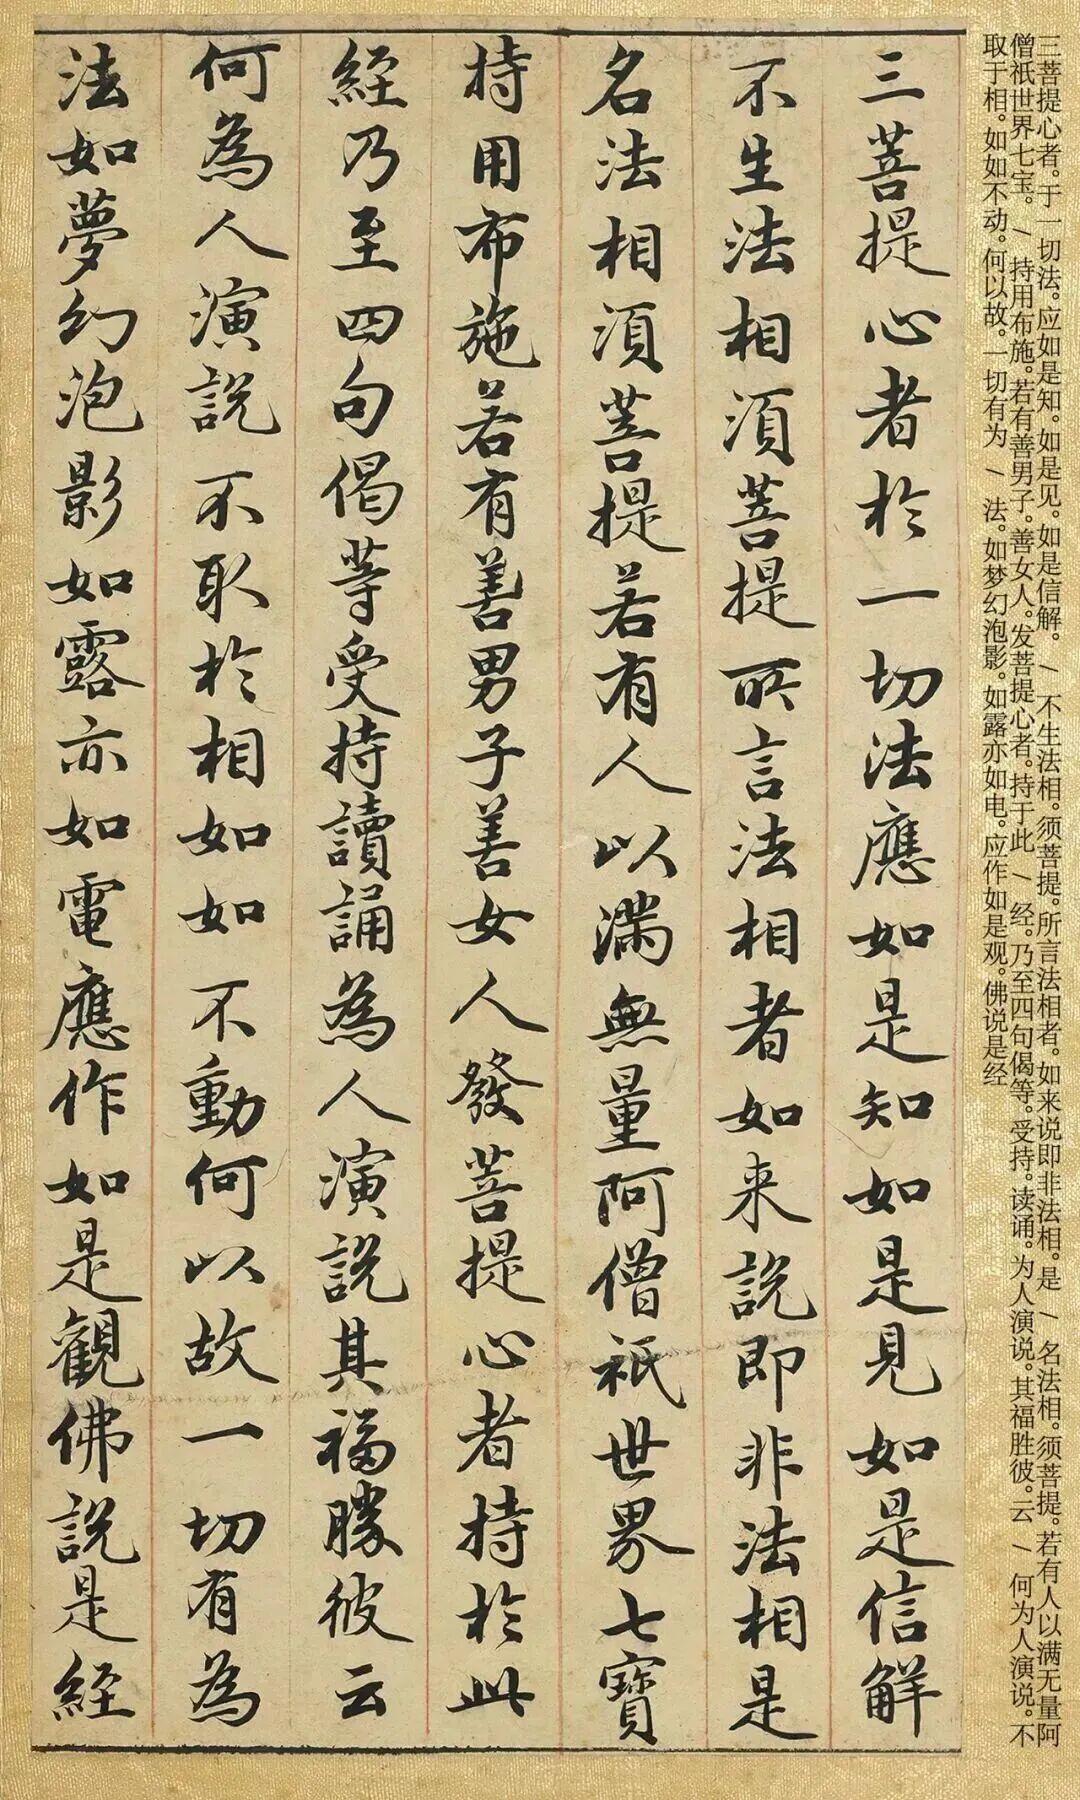 三菩提心者。于一切法。应如是知。如是见。如是信解。/不生法相。须菩提。所言法相者。如来说即非法相。是/名法相。须菩提。若有人以满无量阿
僧祇世界七宝。/持用布施。若有善男子。善女人。发菩提心者。持于此/经。乃至四句偈等。受持。读诵。为人演说。其福胜彼。云/何为人演说。不
取于相。如如不动。何以故。一切有为/法。如梦幻泡影。如露亦如电。应作如是观。佛说是经
三菩提心者於一切法應如是知如是見如是信解
不生法相須菩提所言法相者如来說即非法相是
名法相須菩提若有人以滿無量阿僧祇世界七寶
持用布施若有善男子善女人發菩提心者持於此
經乃至四句偈等受持讀誦為人演說其福勝彼云
何為人演說不取於相如如不動何以故一切有為
法如夢幻泡影如露亦如電應作如是觀佛說是經